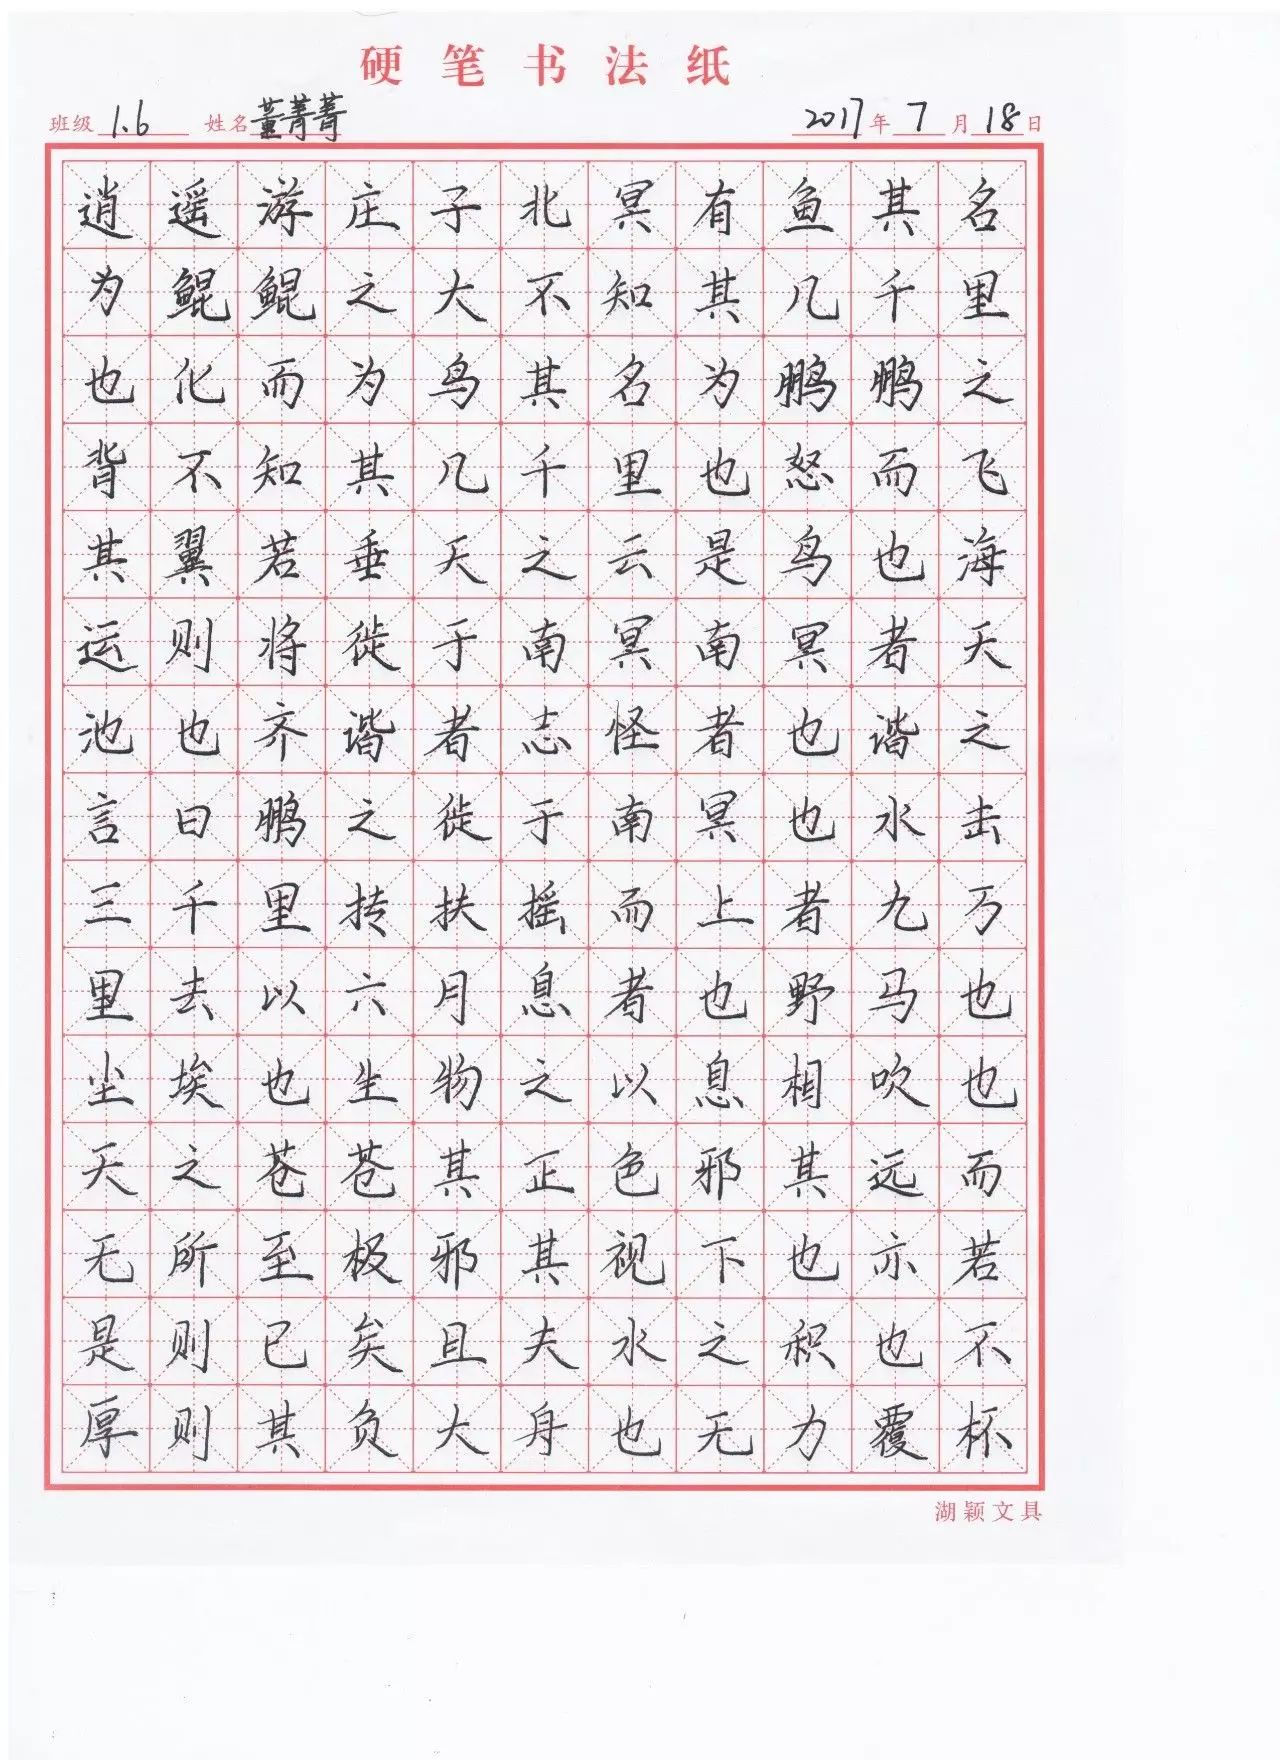 硬笔书法纸
班级 1.6 姓名 董菁菁 2017年7月18日
逍遥游庄子北冥有鱼其名
为鲲鲲之大不知其几千里
也化而为鸟其名为鹏鹏之
背不知其几千里也怒而飞
其翼若垂天之云是鸟也海
运则将徙于南冥南冥者天
池也齐谐者志怪者也谐之
言曰鹏之徙于南冥也水击
三千里抟扶摇而上者九万
里去以六月息者也野马也
尘埃也生物之以息相吹也
天之苍苍其正色邪其远而
无所至极邪其视下也亦若
是则已矣且夫水之积也不
厚则其负大舟也无力覆杯
湖颖文具